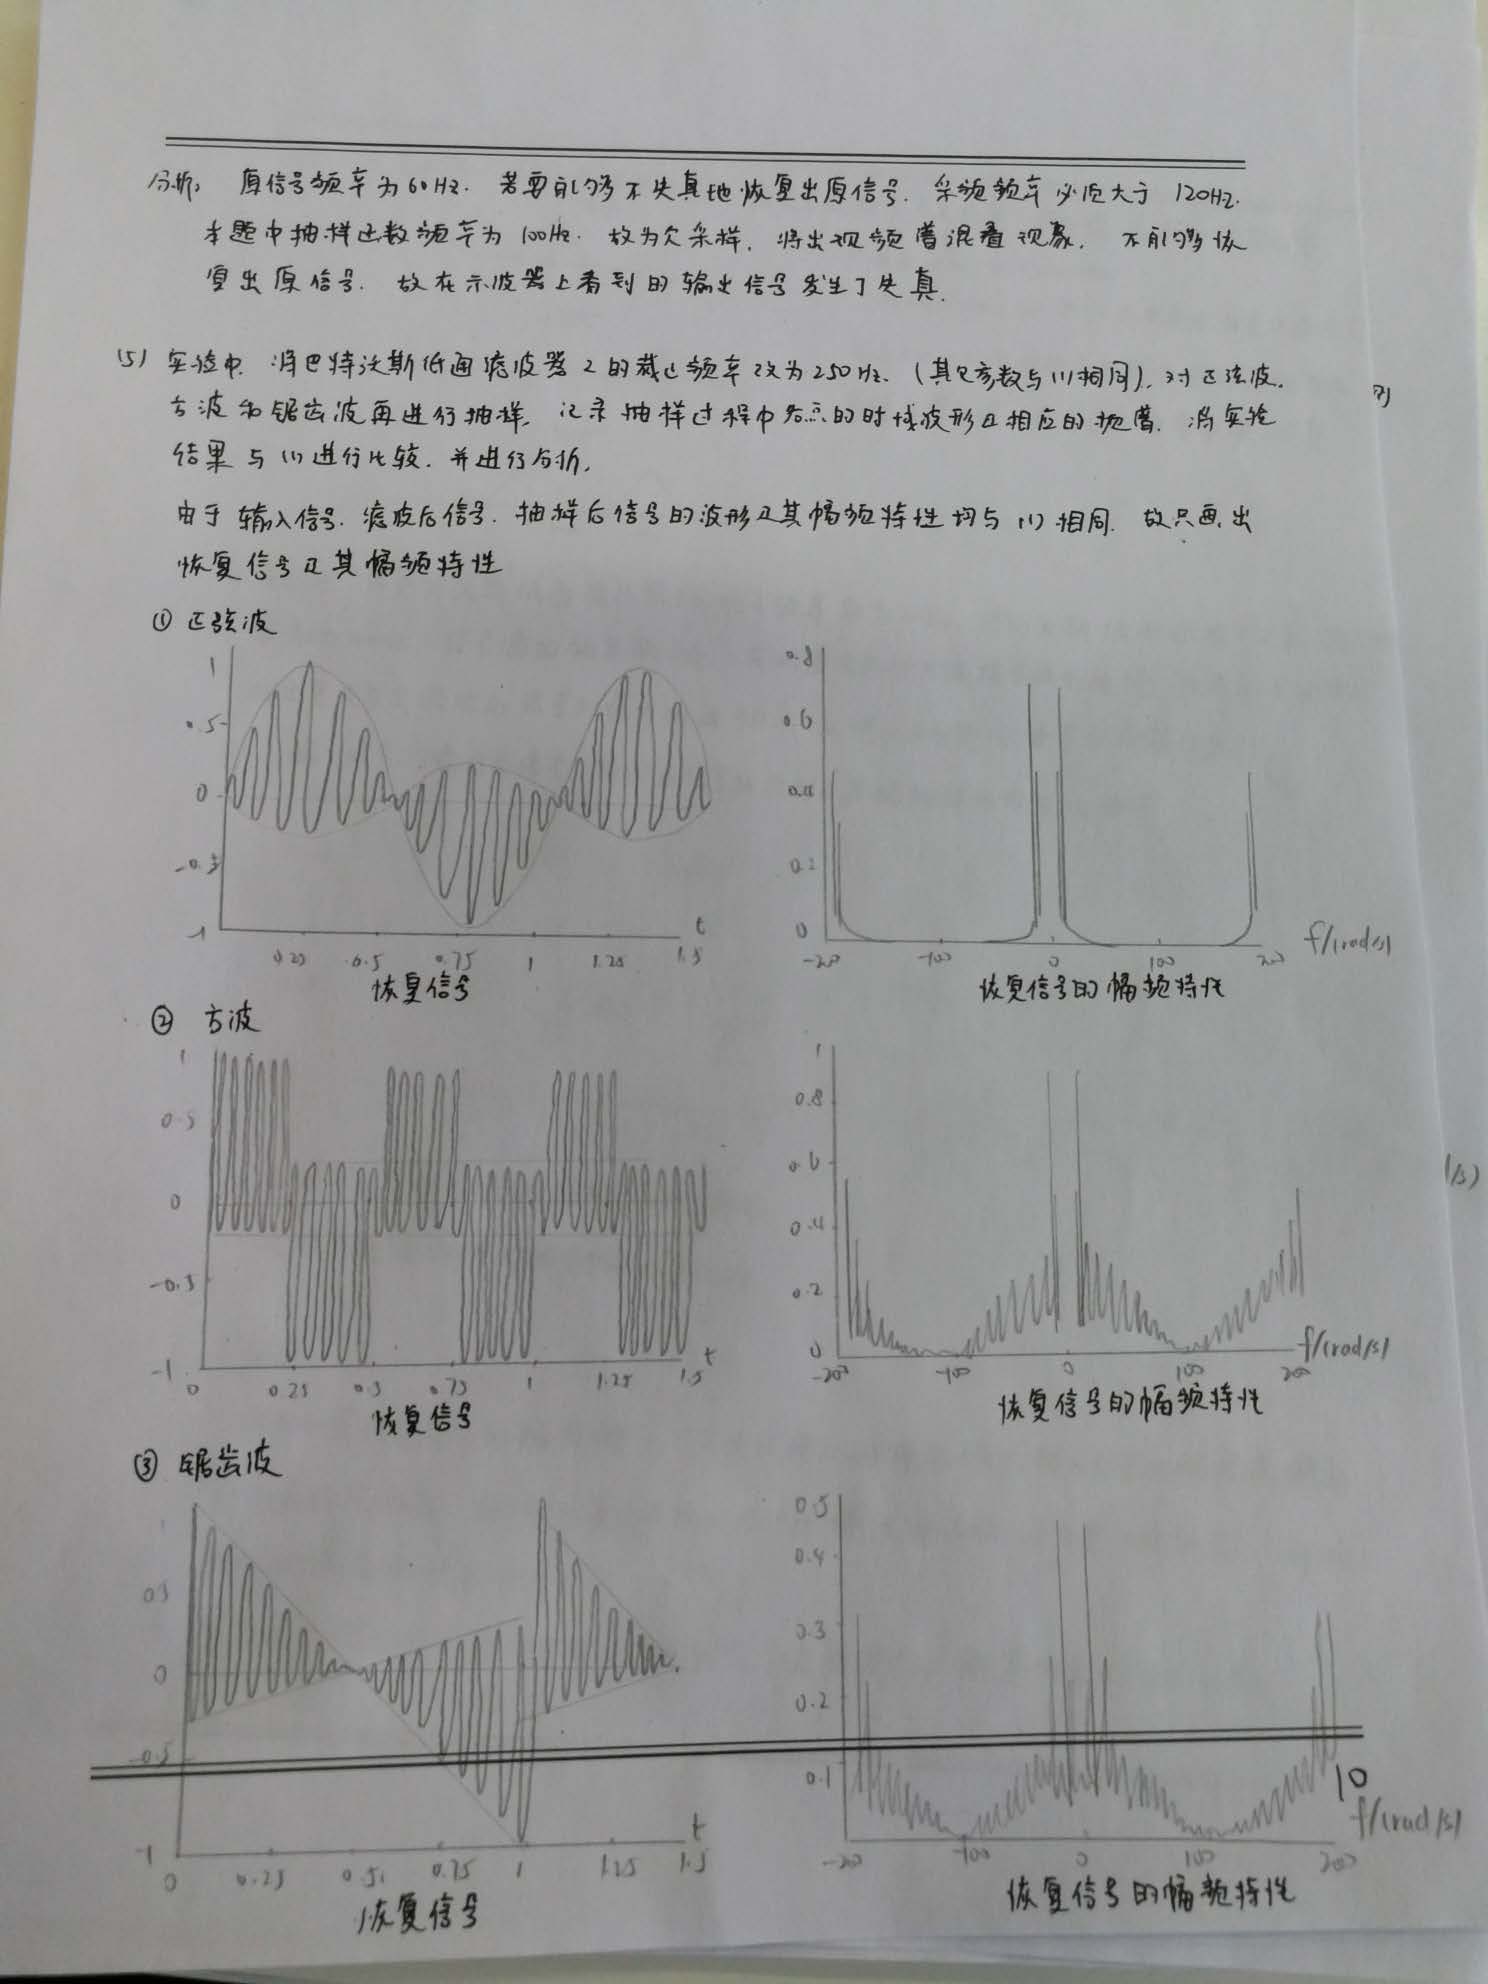 分析: 原信号频率为60Hz. 若要能够不失真地恢复出原信号. 采频频率必须大于 120Hz.
本题中抽样函数频率为100Hz. 故为欠采样, 将出现频谱混叠现象, 不能够恢
复出原信号. 故在示波器上看到的输出信号发生了失真.
(5) 实验中, 将巴特沃斯低通滤波器2的截止频率改为250Hz. (其它参数与(1)相同), 对正弦波.
方波和锯齿波再进行抽样, 记录抽样过程中各点的时域波形及相应的频谱. 将实验
结果与(1)进行比较. 并进行分析.
由于输入信号. 滤波后信号. 抽样后信号的波形及其幅频特性均与(1)相同. 故只画出
恢复信号及其幅频特性
① 正弦波
1
0.5
0
-0.5
-1
0.25 0.5 0.75 1 1.25 1.5
t
恢复信号
0.8
0.6
0.4
0.2
0
-200 -100 0 100 200
f/(rad/s)
恢复信号的幅频特性
② 方波
1
0.5
0
-0.5
-1
0 0.25 0.5 0.75 1 1.25 1.5
t
恢复信号
1
0.8
0.6
0.4
0.2
0
-200 -100 0 100 200
f/(rad/s)
恢复信号的幅频特性
/s)
③ 锯齿波
0.5
0
-0.5
-1
0 0.25 0.5 0.75 1 1.25 1.5
t
恢复信号
0.5
0.4
0.3
0.2
0.1
-200 -100 0 100 200
f/(rad/s)
恢复信号的幅频特性
10